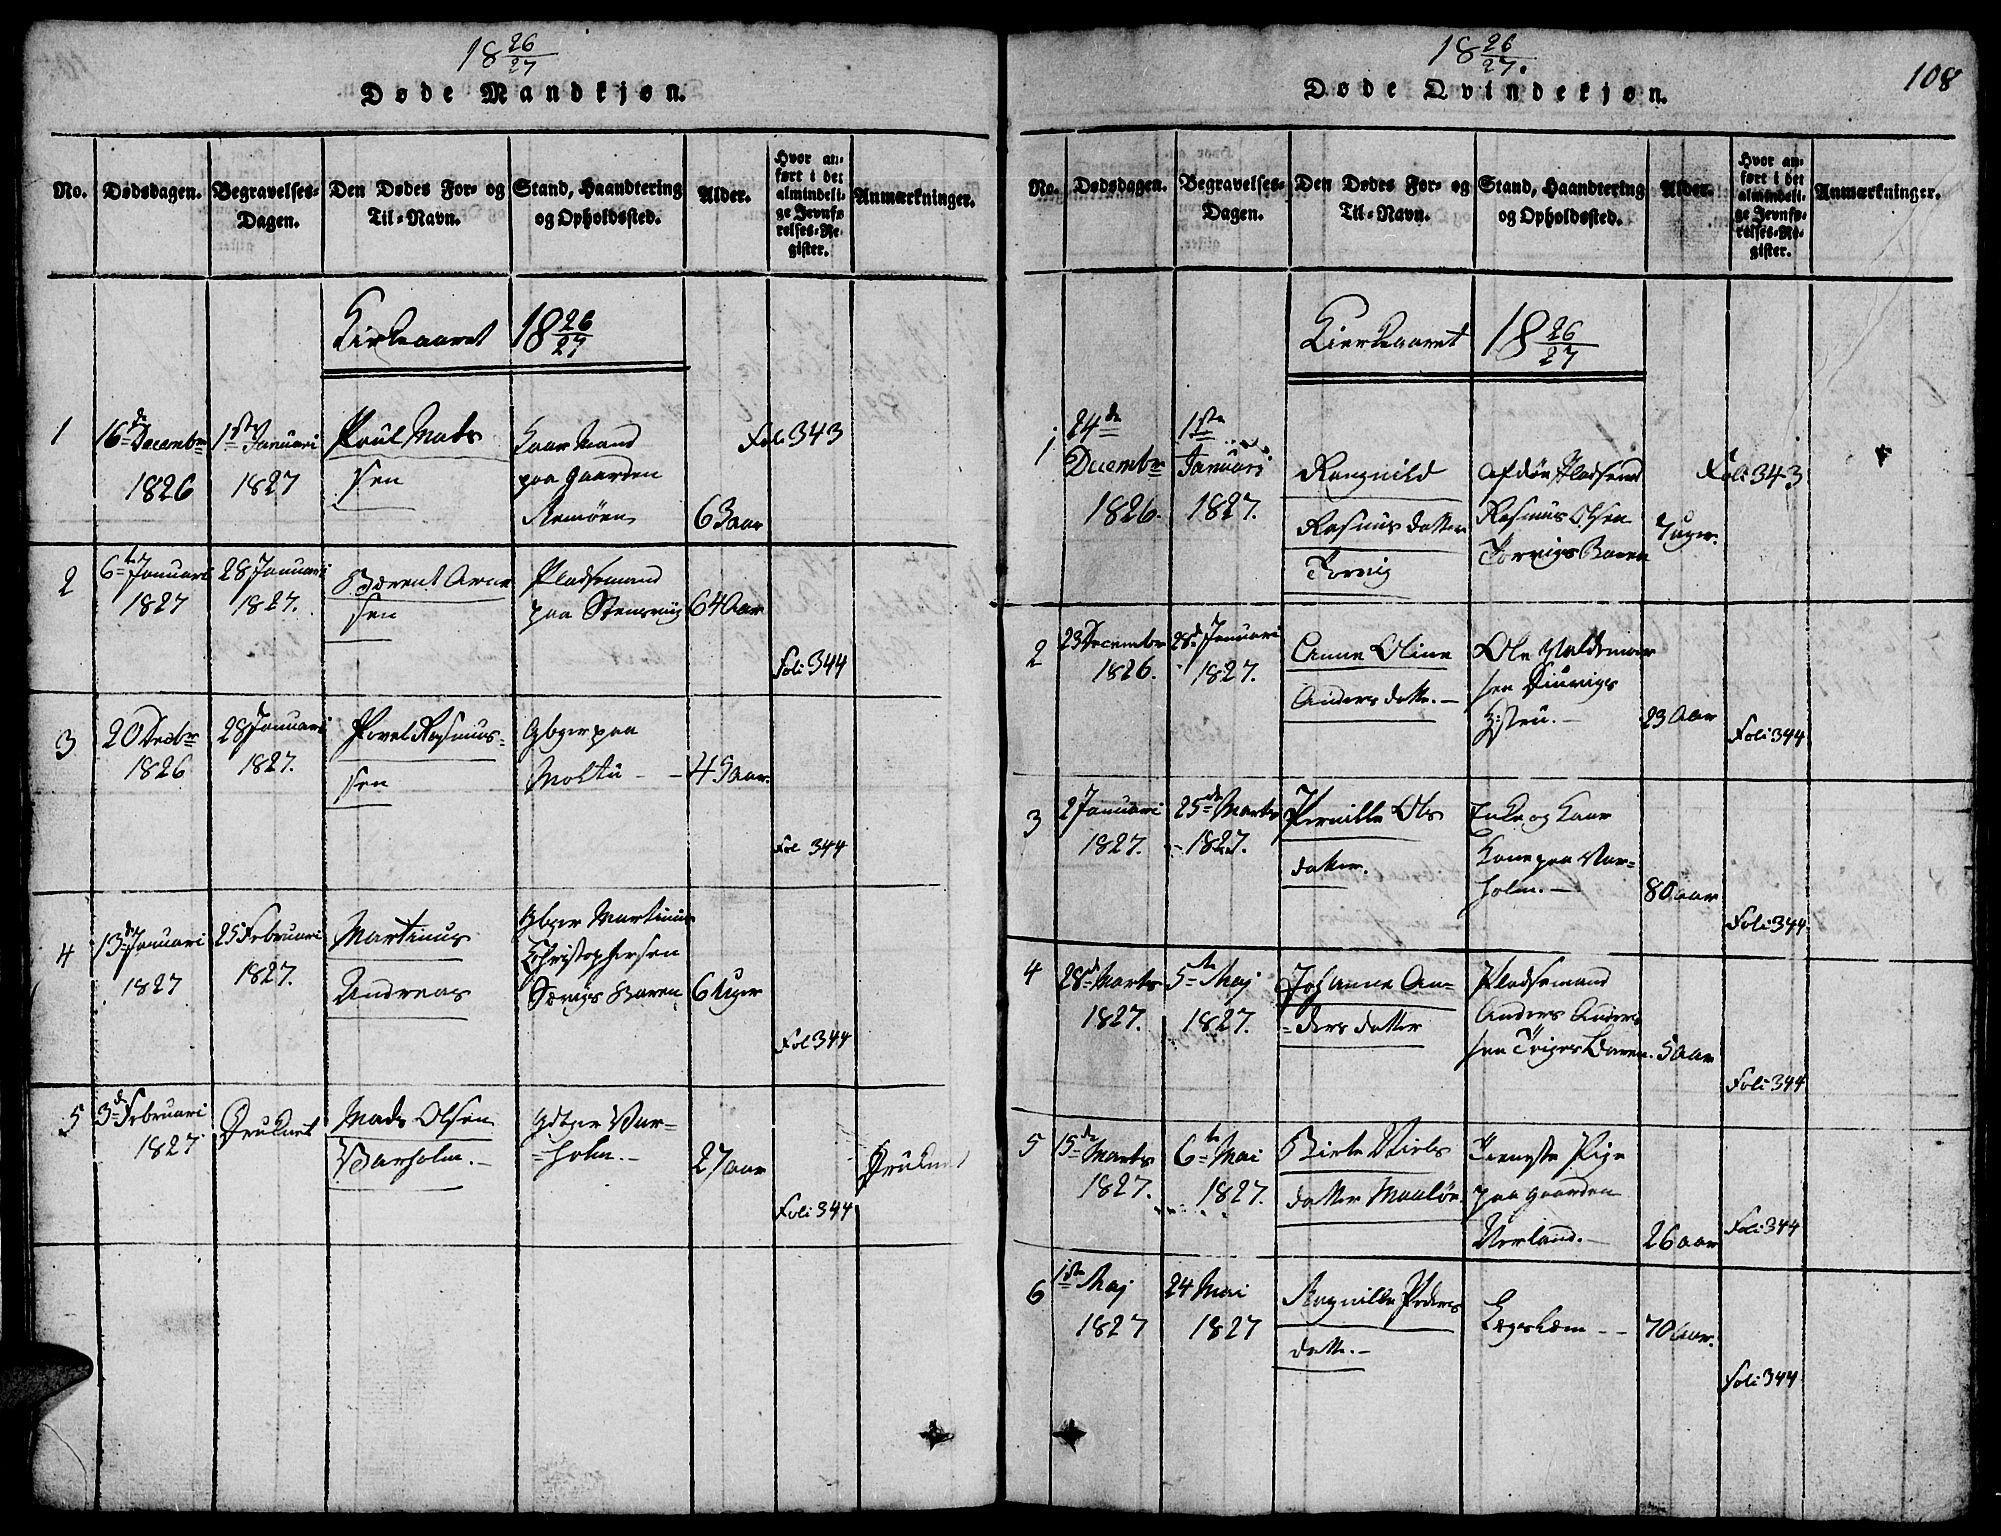 18 26/27
Døde Mandkjøn.
No. Dødsdagen. Begravelses-Dagen. Den Dødes For- og Til-Navn. Stand, Haandtering og Opholdssted. Alder. Hvor anført i det almindelige Jevnførelses-Register. Anmærkninger.
Kirkeaaret 18 26/27
1 16de Decembr 1826 1ste Januari 1827 Poul Mats
sen Kaar Mand
paa Gaarden
Remöen 63 aar Fol: 343
2 6te Januari 1827 28 Januari 1827. Bærent Arne
sen Pladsemand
paa Stensvig 64 Aar
Foli 344
3 20 Decbr 1826 28 Januari 1827. Povel Rasmus-
sen Gbger paa
Moltu - - 49 aar.
Fol 344
4 13de Januari 1827 25 Februari 1827. Martinus
Andreas Gbger Martinus
Christophersen
Sævigs Baren 6 Uger
Fol 344
5 3de Februari 1827 Druknet Mads Olsen
Varholm.- Gdbger Var=
=holm.- 27 aar Druknet
Foli 344
18 26/27.
108
Døde Qvindekjøn.
No. Dødsdagen. Begravelses-Dagen. Den Dødes For- og Til-Navn. Stand, Haandtering og Opholdssted. Alder. Hvor anført i det almindelige Jevnførelses-Register. Anmærkninger.
Kierkaaret 18 26/27
1 24de
Decembr
1826. 1ste
Januari
1827. Rangnild
Rasmusdatter
Torvig afdöe Pladsemd
Rasmus Olsen
Torvigs Baren 7 uger. Foli 343
2 23 December 1826. 28de Januari 1827. Anne Oline
Andersdatte.- Ole Valdemar
sen
23 Aar Foli 344
3 2 Januari 1827. 25de Marts 1827. Pernille Ols
datter. Enke og Kaar
Kone paa Var-
holm.- 80 aar
Foli 344
4 28de Marts 1827. 5te Maj 1827. Johanne An=
=dersdatter Pladsemand
Anders Anders
sen Baren. 5 aar
Foli 344
5 15de Marts 1827. 6te Mai 1827. Birte Niels
datter Maaløe Tieneste Pige
paa Gaarden
Nerland.- 26 aar Foli 344
6 1ste Maj 1827 24 Mai 1827 Ragnille Peders
datte.- Eegshæm - - 70 Aar.
Foli 344